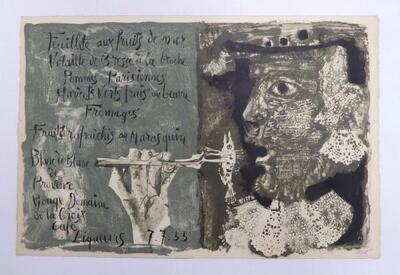 Feuilleté aux fruits de mer
Volaille de Bresse à la broche
Pommes Parisiennes
Haricots Verts frais au beurre
Fromages
Fruits rafraîchis au Marasquin
Blanc de Blanc
de
Provence
Rouge Domaine
de la Croix
Café
Liqueurs 7.7.55